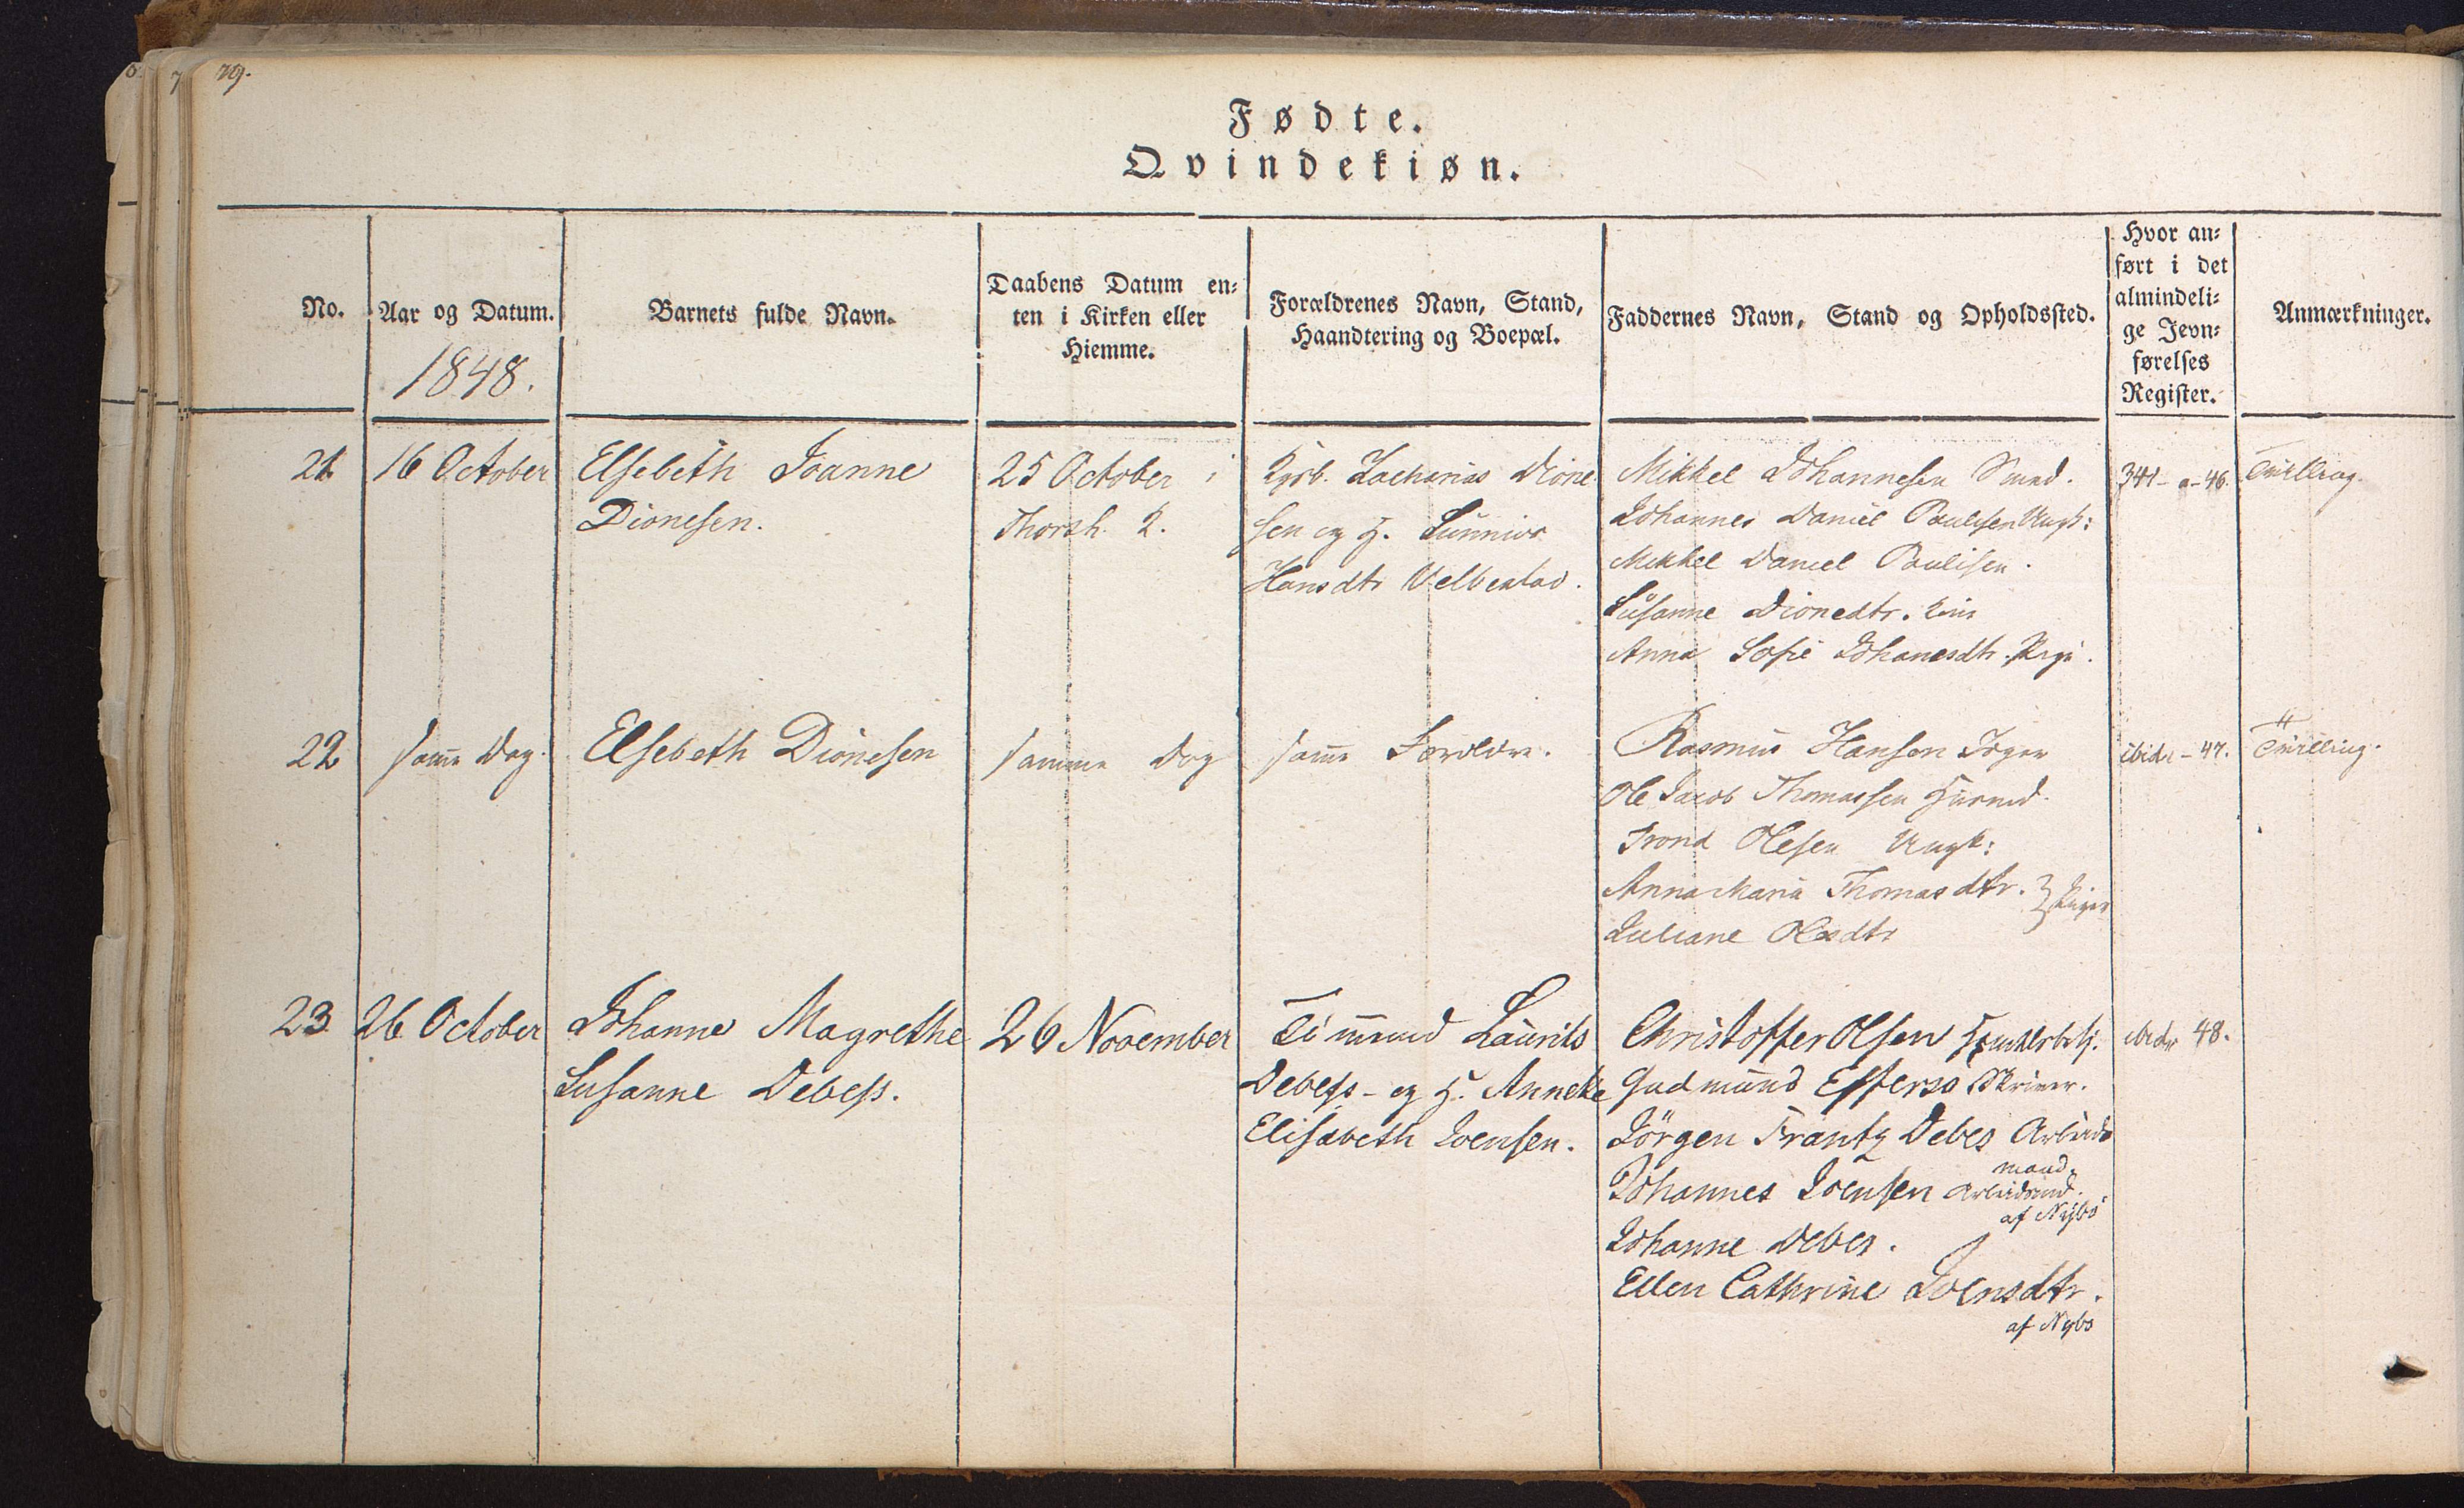 79.
Fødte.
Qvindekiøn.
No.
Aar og Datum.
1848.
Barnets fulde Navn.
Daabens Datum en-
ten i Kirken eller
Hiemme.
Forældrenes Navn, Stand,
Haandtering og Boepæl.
Faddernes Navn, Stand og Opholdssted.
Hvor an-
ført i det
almindeli-
ge Jevn-
førelses
Register.
Anmærkninger.
21
16 October
Elsebeth Joanne
Dionesen.
25 October i
Thorsh. K.
Zacharias Dione
sen og H. Sunniva
Hansdtr Velbestad.
Mikkel Johannesen Smed.
Johannes Daniel Poulisen Ungk:
Mikkel Daniel Poulisen.
Susanne Dionedtr.
Anna Sofie Johanesdtr. Pige.
341-a-46.
Tvilling.
22
samme Dag.
Elsebeth Dionesen
samme Dag
samme Forældre.
Rasmus Hansen
Ole Jacob Thomassen Huusmd.
Trond Olesen Ungk:
Anna Maria Thomasdtr. } Piger
Juliane Olesdtr
ibid. - 47.
Tvilling.
23
26 October
Johanne Magrethe
Susanne Debess.
26 November
Debess - og H. Annekke
Elisabeth Joensen.
Christoffer Olsen
Gudmund Effersø Skriver.
Jörgen Frantz Debes Arbeids
mand.
Johannes Joensen Arbeidsmd.
af Nybø
Johanne Debes.
Ellen Cathrine Joensdtr.
af Nybø
ibid. 48.